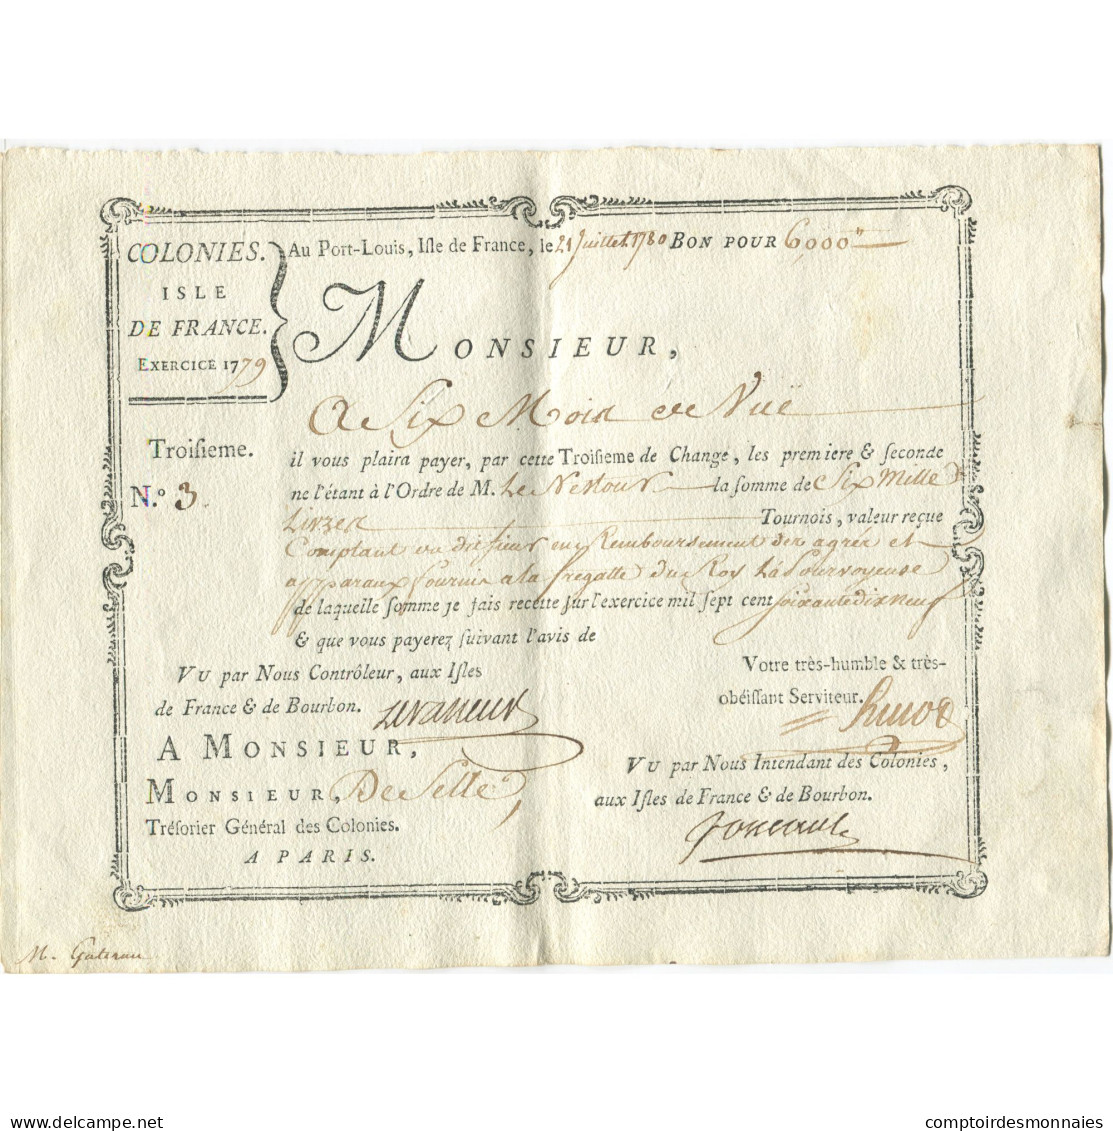 COLONIES.
ISLE
DE FRANCE.
EXERCICE 1779
Au Port-Louis, Isle de France, le 21 Juillet 1780 BON POUR 6000"
MONSIEUR,
A Six Mois de Vuë
Troisieme.
il vous plaira payer, par cette Troisieme de Change, les premiere & seconde
N.º 3.
ne l'étant à l'Ordre de M. Le la somme de Six Mille
Livres Tournois, valeur reçue
Comptant du dit sieur en Remboursement des agrés et
apparaux fournis a la fregatte du Roy La Pourvoyeuse
de laquelle somme je fais recette sur l'exercice mil sept cent soixante dix neuf
& que vous payerez suivant l'avis de
VU par Nous Contrôleur, aux Isles
de France & de Bourbon.
Votre très-humble & très-
obéissant Serviteur.
A MONSIEUR,
MONSIEUR, De Selle,
Trésorier Général des Colonies.
A PARIS.
VU par Nous Intendant des Colonies,
aux Isles de France & de Bourbon.
Foucault
M.
comptoirdesmonnaies